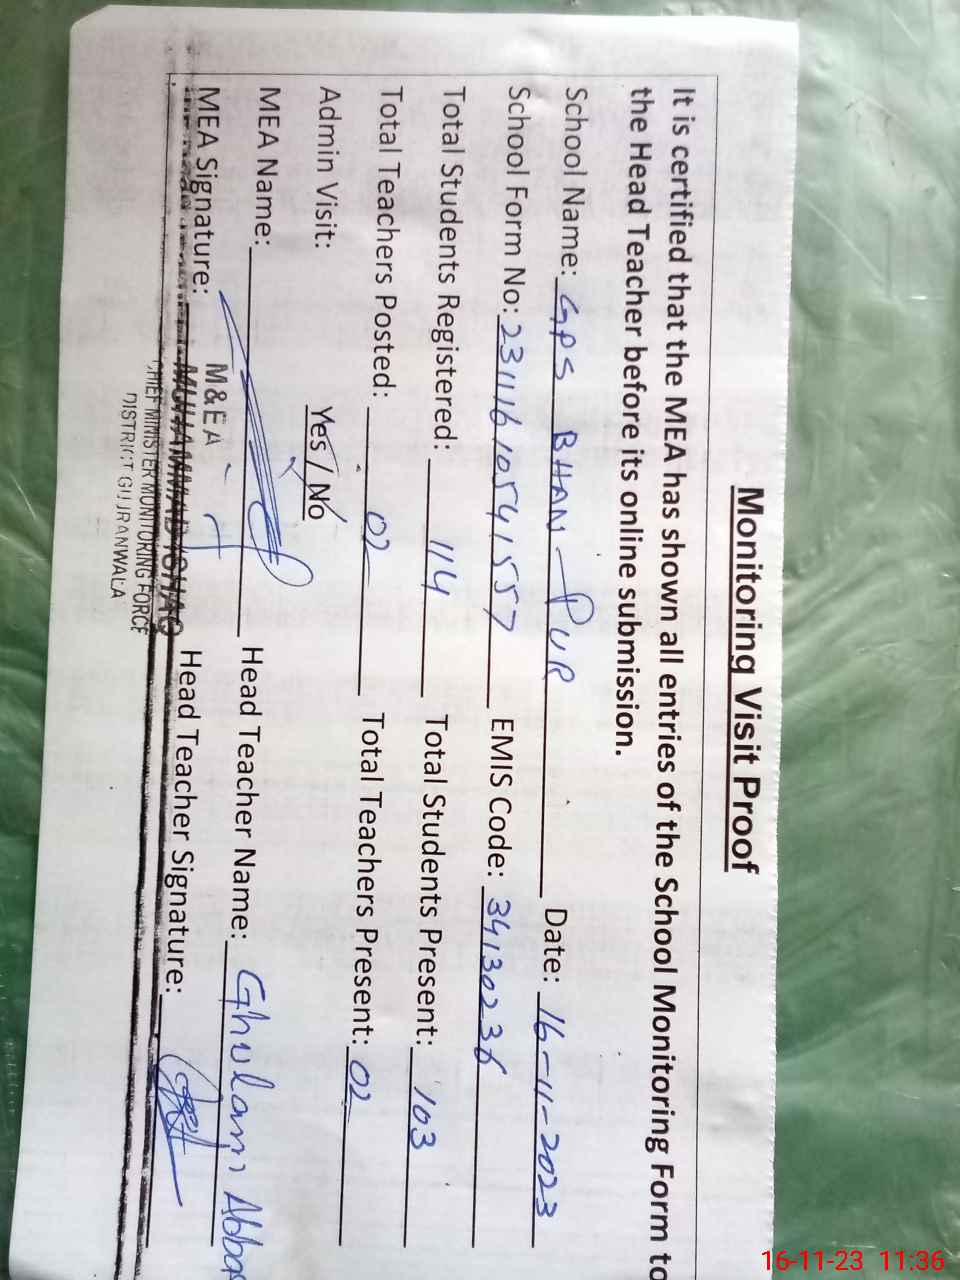 Monitoring Visit Proof
It is certified that the MEA has shown all entries of the School Monitoring Form to
the Head Teacher before its online submission.
School Name: GPS BHAN-PUR Date: 16-11-2023
School Form No: 231116 1054157 EMIS Code: 34130236
Total Students Registered: 114 Total Students Present: 103
Total Teachers Posted: 02 Total Teachers Present: 02
Admin Visit: Yes / No
MEA Name: Head Teacher Name: Ghulam Abbas
MEA Signature: Head Teacher Signature:
M&EA
MUHAMMAD ISHAQ
CHIEF MINISTER MONITORING FORCE
DISTRICT GUJRANWALA
16-11-23 11:36